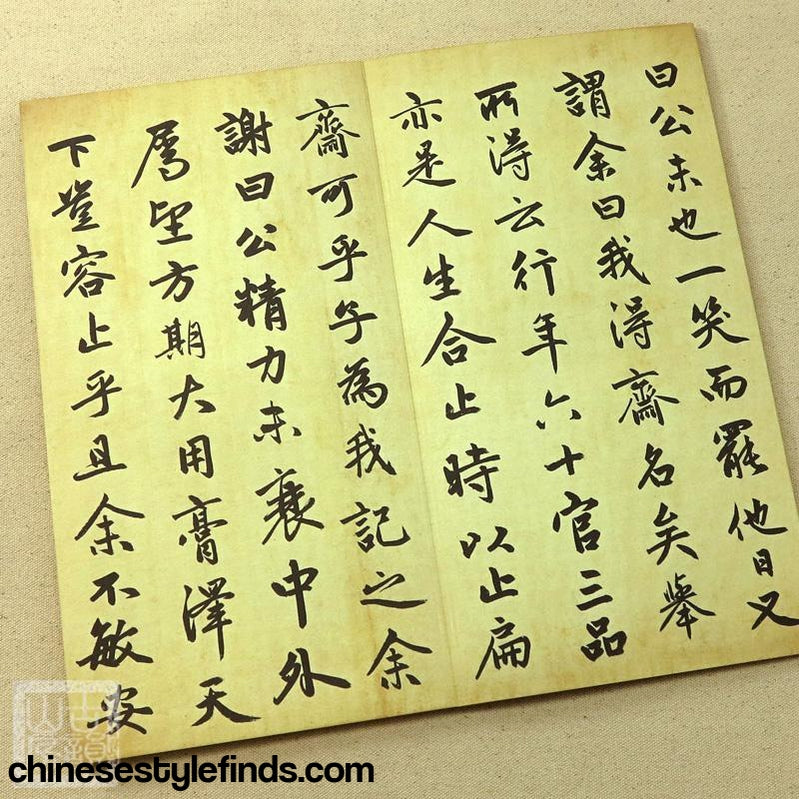 曰公未也一笑而罷他日又
謂余曰我得齋名矣舉
所得云行年六十官三品
亦是人生合止時以止扁
齋可乎子為我記之余
謝曰公精力未衰中外
屬望方期大用膏澤天
下豈容止乎且余不敏安
chinesestylefinds.com